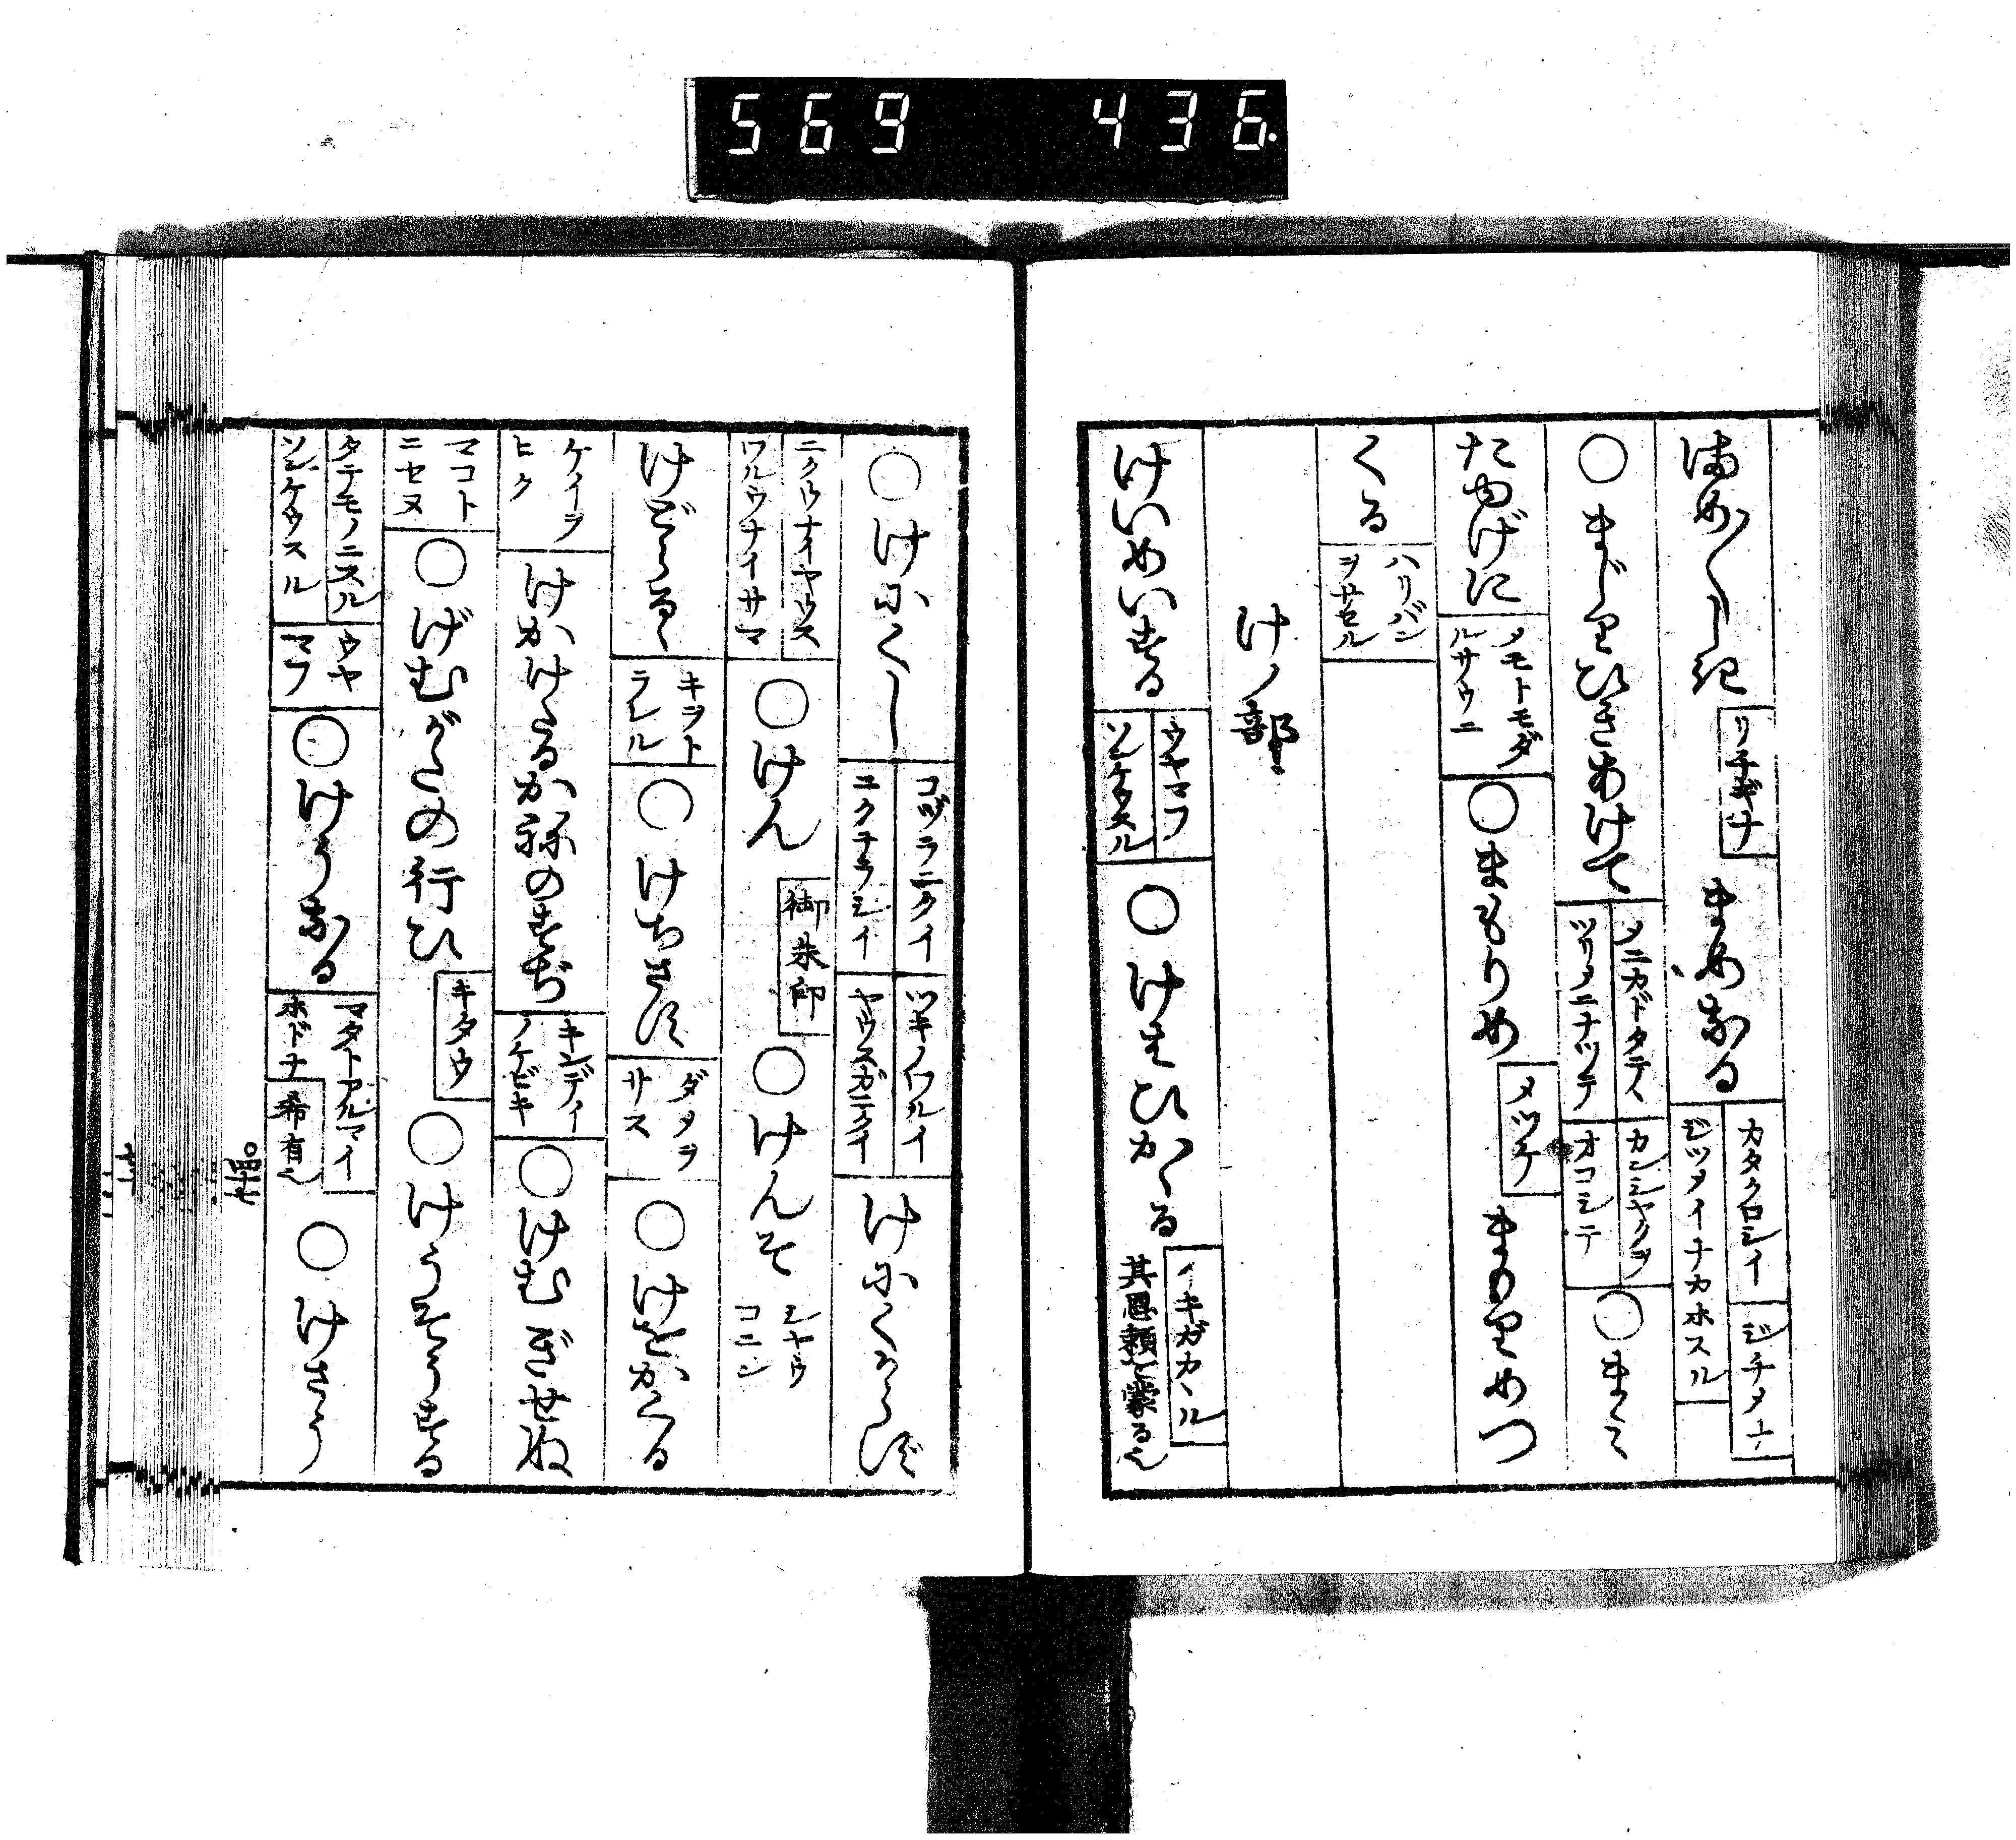 569 436.
まめ〳〵しき
リチギナ
まめなる
カタクロシイ
ジツメイナカホスル
ジチメナ
○まじりひきあけて
メニカドタテヽ
ツリメニナツテ
カンシヤクヲ
オコシテ
○まく
たゆげに
メモトモダ
ルサウニ
○まもりめ
メツケ
まもりめつ
くる
ハリバン
ヲサセル
けノ部
けいめいする
ウヤマフ
ソンケウスル
○けはひかゝる
イキガカヽル
其恩頼を蒙る也
○けにくし
コヅラニクイ
ニクテラシイ
ツキノワルイ
ヤウスガニクイ
けにくからず
ニクウナイヤウス
ワルウナイサマ
○けん
御朱印
○けんそ
シヤウ
コニン
けどらるゝ
キヲト
ラルル
○けちさす
ダメヲ
サス
○けをかくる
ケイヲ
ヒク
けかけたるかねのすぢ
キンデイ
ノケビキ
○けむぎせぬ
マコト
ニセヌ
○げむがたの行ひ
キタウ
○けうそうする
タテモノニスル
ソンケウスル
ウヤ
マフ
○けうなる
マタトアルマイ
ホドナ
希有也
○けさう